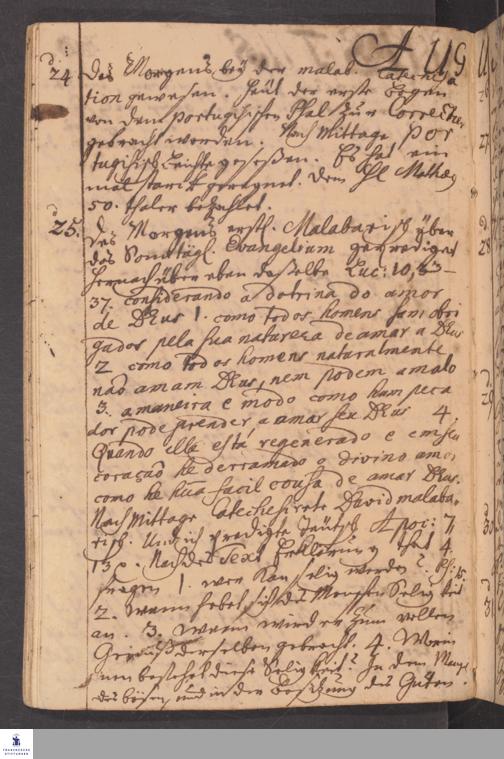 AUG
d. 24. Des Morgens bey der malab. Catechisa
tion gewesen. Heut der erste Bogen
von dem portugisischen Psal zur Correctur
gebracht worden. Nach Mittage Por
tugisisch gesessen. Es hat ein
mal starck geregnet. Dem Hl
50. thaler bezahlet.
d. 25. Des Morgens erstl. Malabarisch über
das Sonntägl. Evangelium geprediget
hernach über eben dasselbe Luc: 10, 23-
37. considerando a dotrina do amor
de DEus 1. como todos homens sam obri
gados pela sua natureza de amar a DEus
2. como todos homens naturalmente
não amam DEus, nem podem amalo
3. a maneira e modo como hum peca
dor pode prender a amar seu DEus 4.
Quando elle está regenerado e em seu
coração he derramado o divino amor
como he hũa facil cousa de amar DEus.
Nach Mittage catechesirete David malaba-
risch. Und ich predigte Teutsch Apoc: 7,
13 Nach des Text Erklärung that 4
fragen 1. wer kan selig werden?
2. Wann hebet sich des Menschen Seligkeit
an. 3. Wann wird er zum vollen
Genuß derselben gebracht. 4. Worin
nun bestehet diese Seligkeit? In dem Mangel
des bösen, und in der Besitzung des Guten.
FRANCKESCHE
STIFTUNGEN